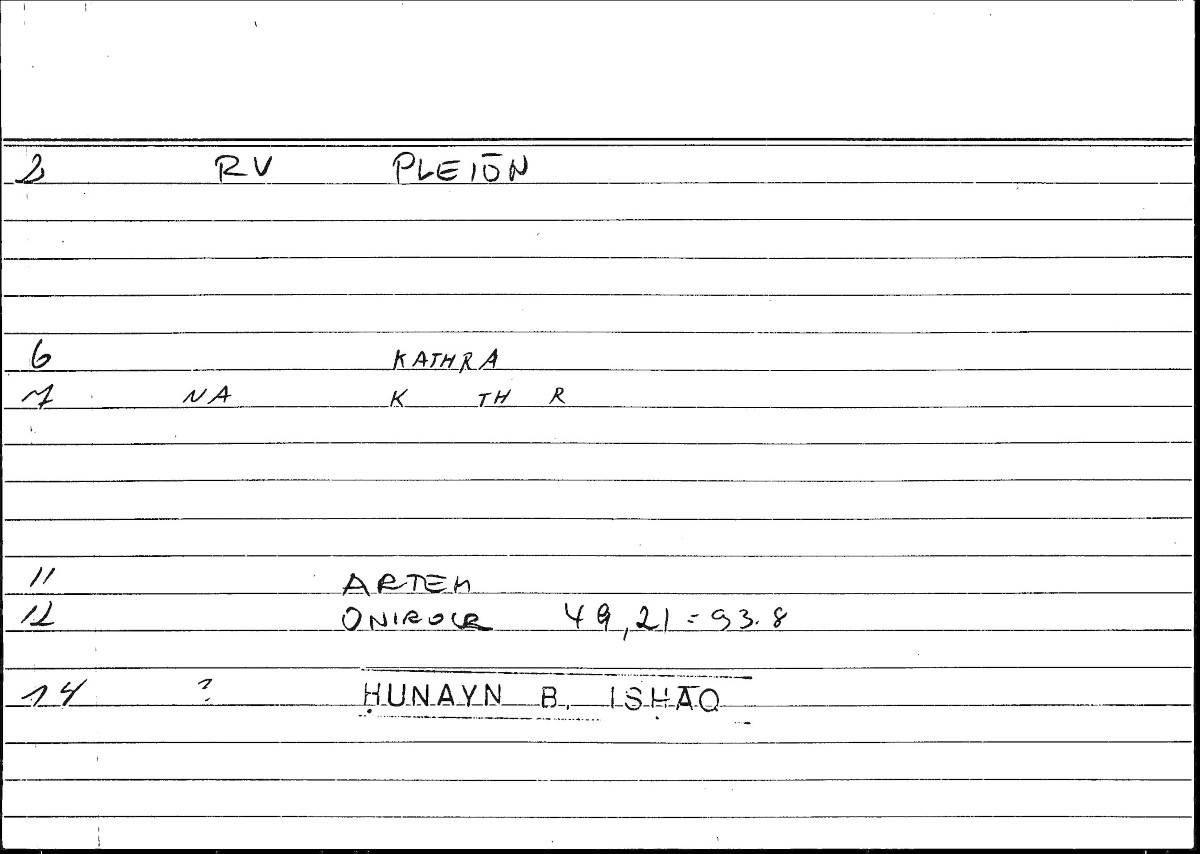 2 RV PLEIŌN
6 KATHRA
7 NA K TH R
11 ARTEM
12 ONIROCR 49,21=93.8
14 ? ḤUNAYN B. ISḤĀQ